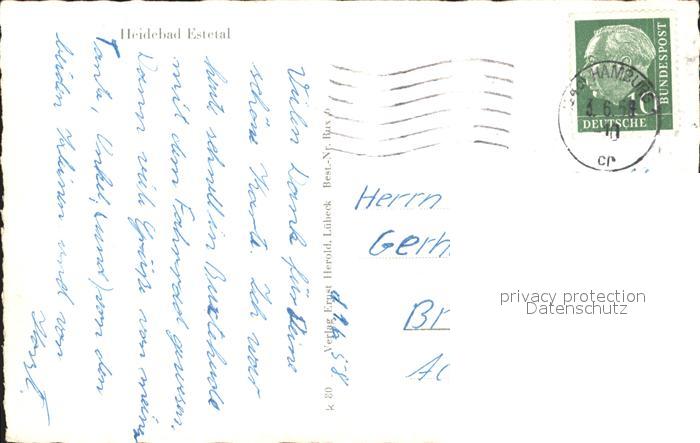 Heidebad Estetal
Vielen Dank für Deine
schöne Karte. Ich war
heute schnell in Buxtehude
mit dem Fahrrad gewesen.
Dann viele Grüße von meine
Tante, Onkel, (und) von den
beiden Kleinen und von
Horst.
k 80 Verlag Ernst Herold, Lübeck Best.-Nr. Bux
Herrn
Gerh
Br
HAMBURG
cp
10
DEUTSCHE
BUNDESPOST
privacy protection
Datenschutz